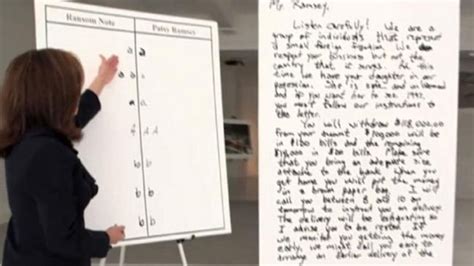 Ransom Note Patsy Ramsey
a a
a a a
a a
A A
b b
b b
b b
Mr. Ramsey,
Listen carefully! We are a
group of individuals that represent
a small foreign faction. We do
respect your bussiness but not the
country that it serves. At this
time we have your daughter in our
posession. She is safe and unharmed
and if you want her to see 1997,
you must follow our instructions to
the letter.
You will withdraw $118,000.00
from your account. $100,000 will be
in $100 bills and the remaining
$18,000 in $20 bills. Make sure
that you bring an adequate size
attache to the bank. When you
get home you will put the money
in a brown paper bag. I will
call you between 8 and 10 am
tomorrow to instruct you on delivery.
The delivery will be exhausting so
I advise you to be rested. If
we monitor you getting the money
early, we might call you early to
arrange an earlier delivery of the